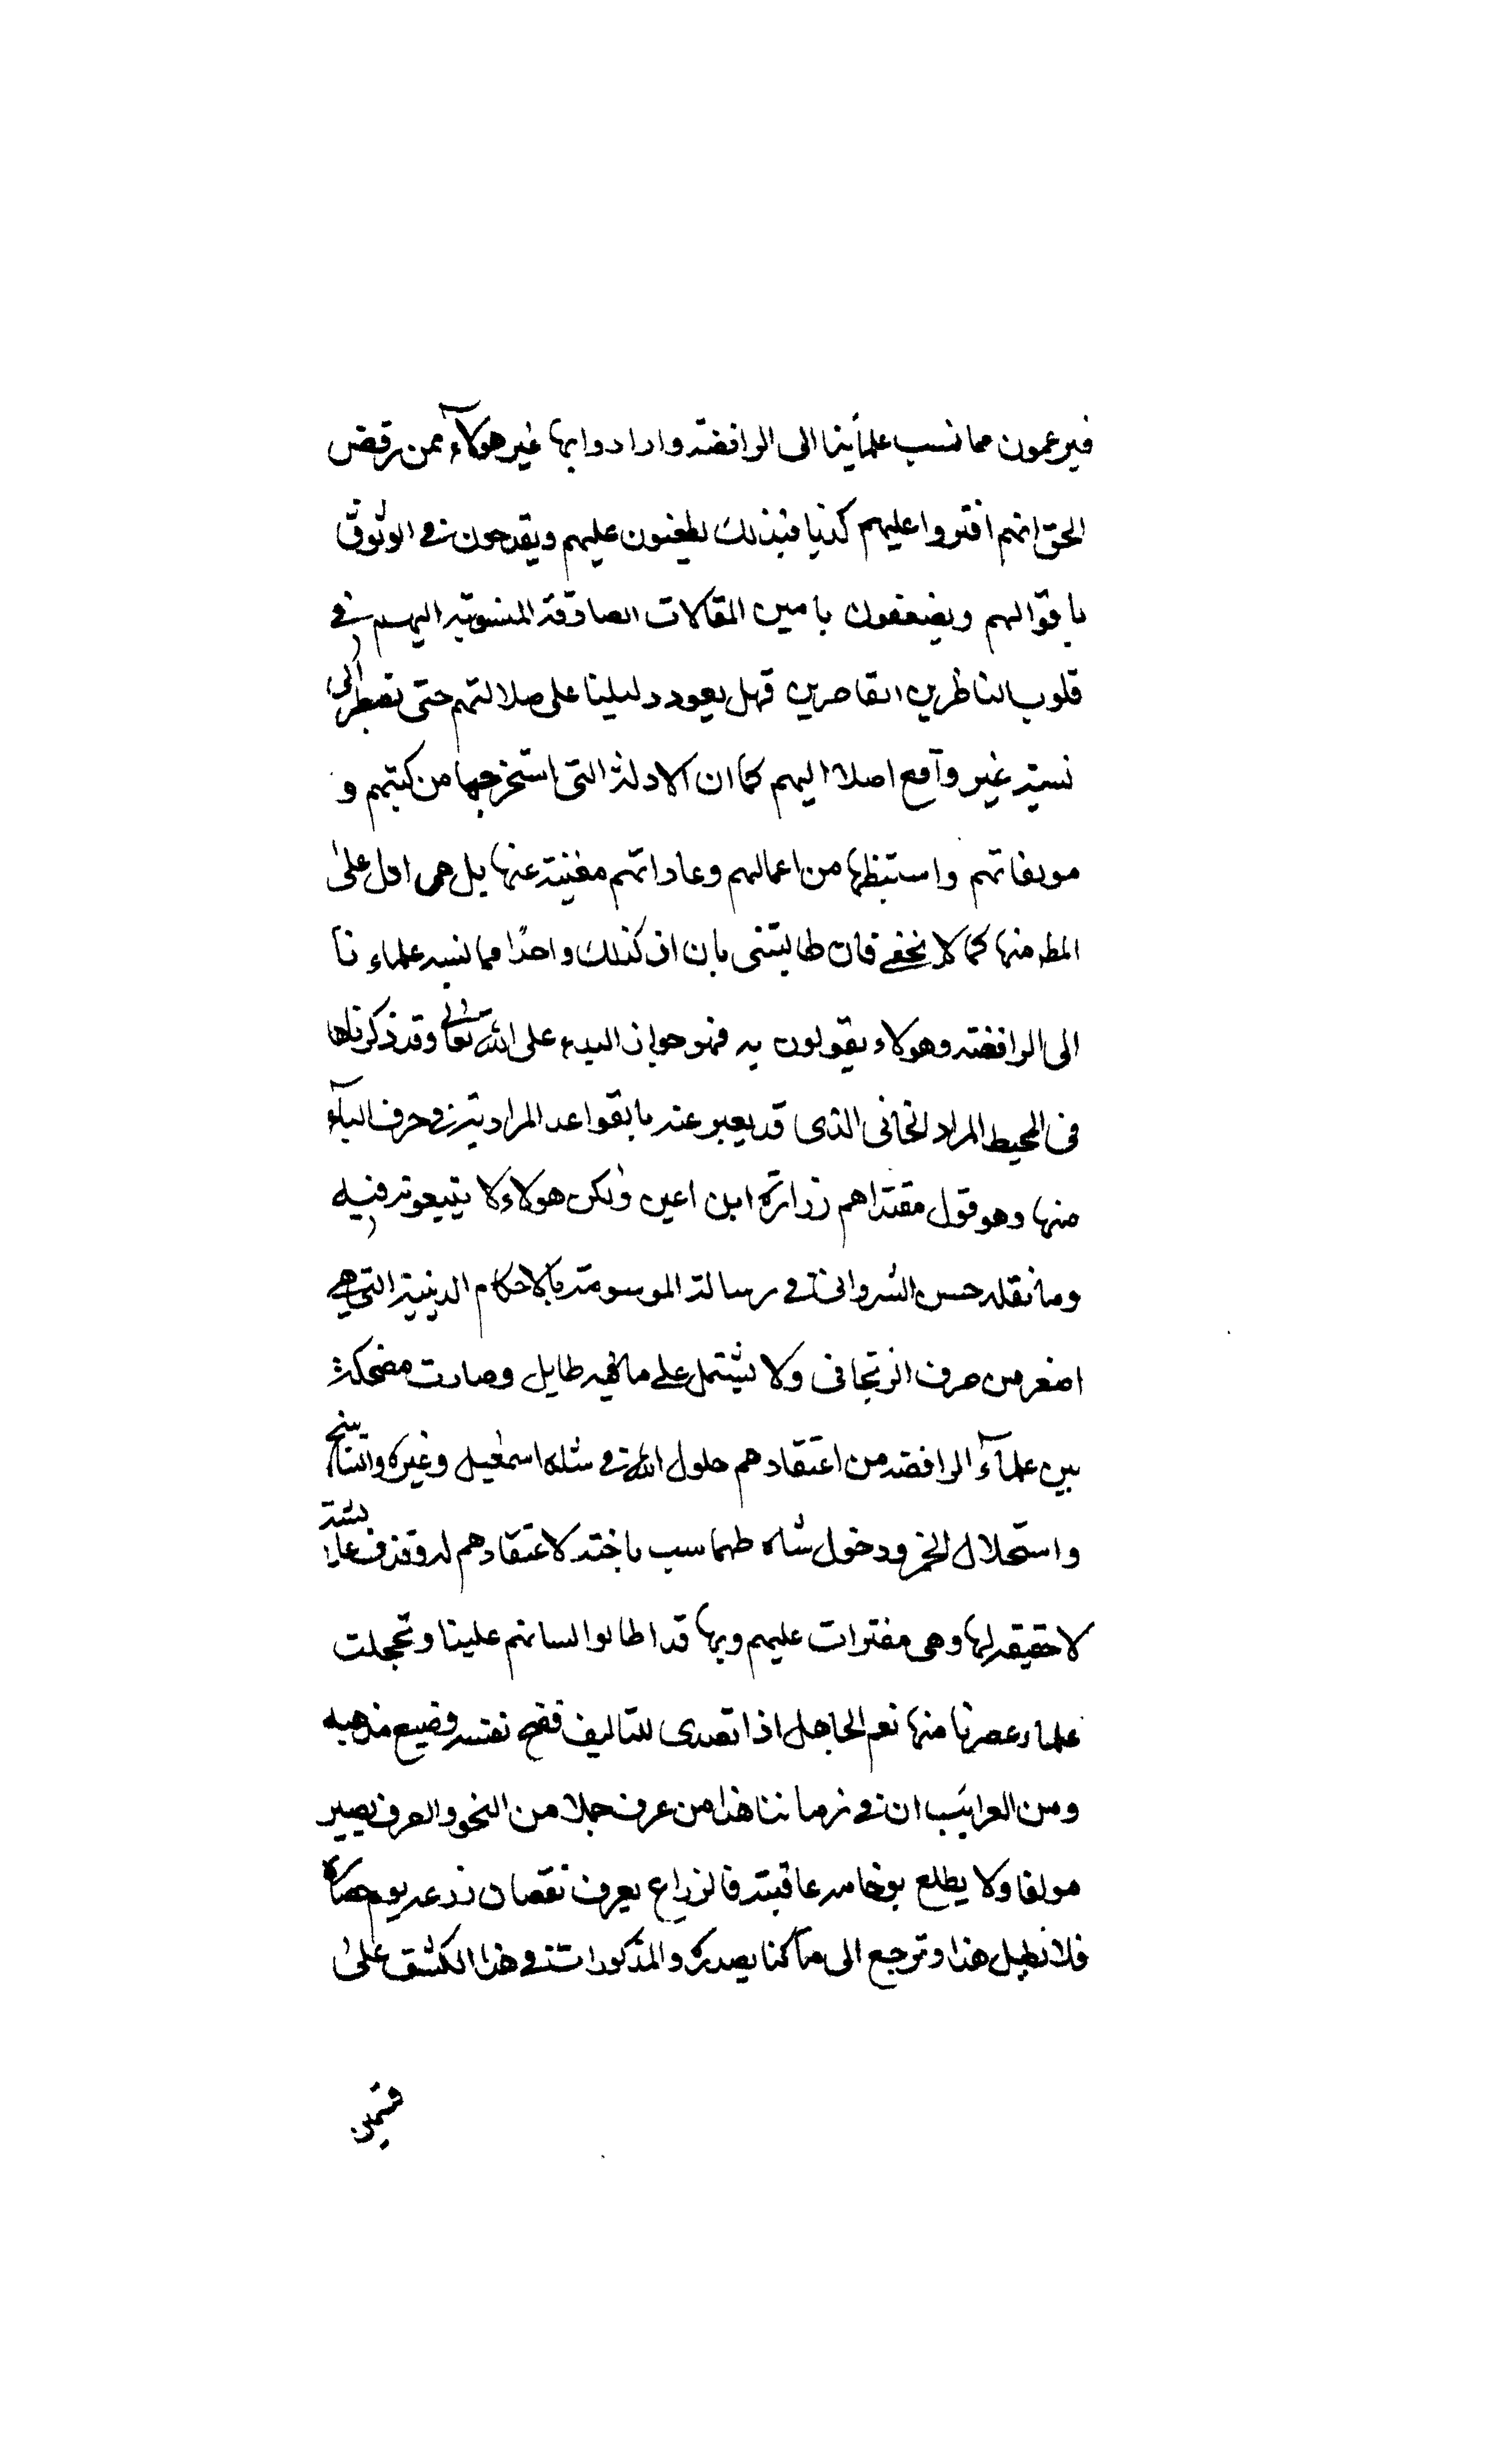 فيزعمون مما نسب علمأينا الى الرافضة وارادوا بها غير هولآء ممن رفض
الحق انهم افتروا عليهم كذبا فبذلك يطعنون عليهم ويقدحون في الوثوق
باقوالهم ويضعفون يامين المقالات الصادقة المنسوبة اليهم في
قلوب الناظرين القاصرين فهل يعود دليلنا على ضلالتهم حتى نضطر الى
نسبة غير واقع اصلا اليهم كما ان الادلة التى استخرجها من كتبهم و
مولفاتهم واستنبطها من اعمالهم وعاداتهم مغنية عنها بل هى ادل على
المط منها كما لا يخفى فان طالبتنى بان اذكر لك واحدًا مما نسبه علماء نا
الى الرافضة وهولاء يقولون به فهو جواز البدء على الله تعالى وقد ذكرناها
فى المحيط المراد لخانى الذى قد يعبر عنه بالقواعد المرادية في حرف البآء
منها وهو قول مقتداهم زرارة ابن اعين ولكن هولاء لا يتبعونه فيه
وما نقله حسن الشروانى في رسالة الموسومة بالاحكام الدينية التى هى
اصغر من صرف الزنجانى ولا يشتمل على ما فيه طايل وصارت مضحكة
بين علمآء الرافضة من اعتقادهم حلول الله في شاه اسمعيل وغيره والتناسخ
واستحلال الخمر ودخول شاه طهماسب باخته لاعتقادهم له وقذف عايشة
لا حقيقة لها وهى مفترات عليهم وبها قد اطالوا لسانهم علينا وتخجلت
علماء عصرنا منها نعم الجاهل اذا تصدى للتاليف فضح نفسه وضيع مذهبه
ومن الغرايب ان في زماننا هذا من عرف جملا من النحو والصرف يصير
مولفا ولا يطلع بوخامه عاقبته فالزراع يعرف نقصان زرعه يوم حصاده
فلا نطيل هذا ونرجع الى مآ كنا بصدده والمذكورات في هذا الكشف على